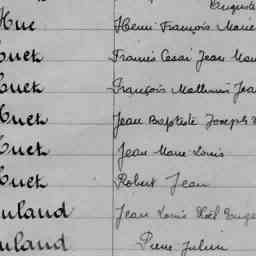 Auguste
Hue Henri François Marie
Huet Francis Cesai Jean Mar
Huet François Mathurin Jea
Huet Jean Baptiste Joseph
Huet Jean Marie Louis
Huet Robert Jean
uland Jean Louis Noël Euge
uland Pierre Julien